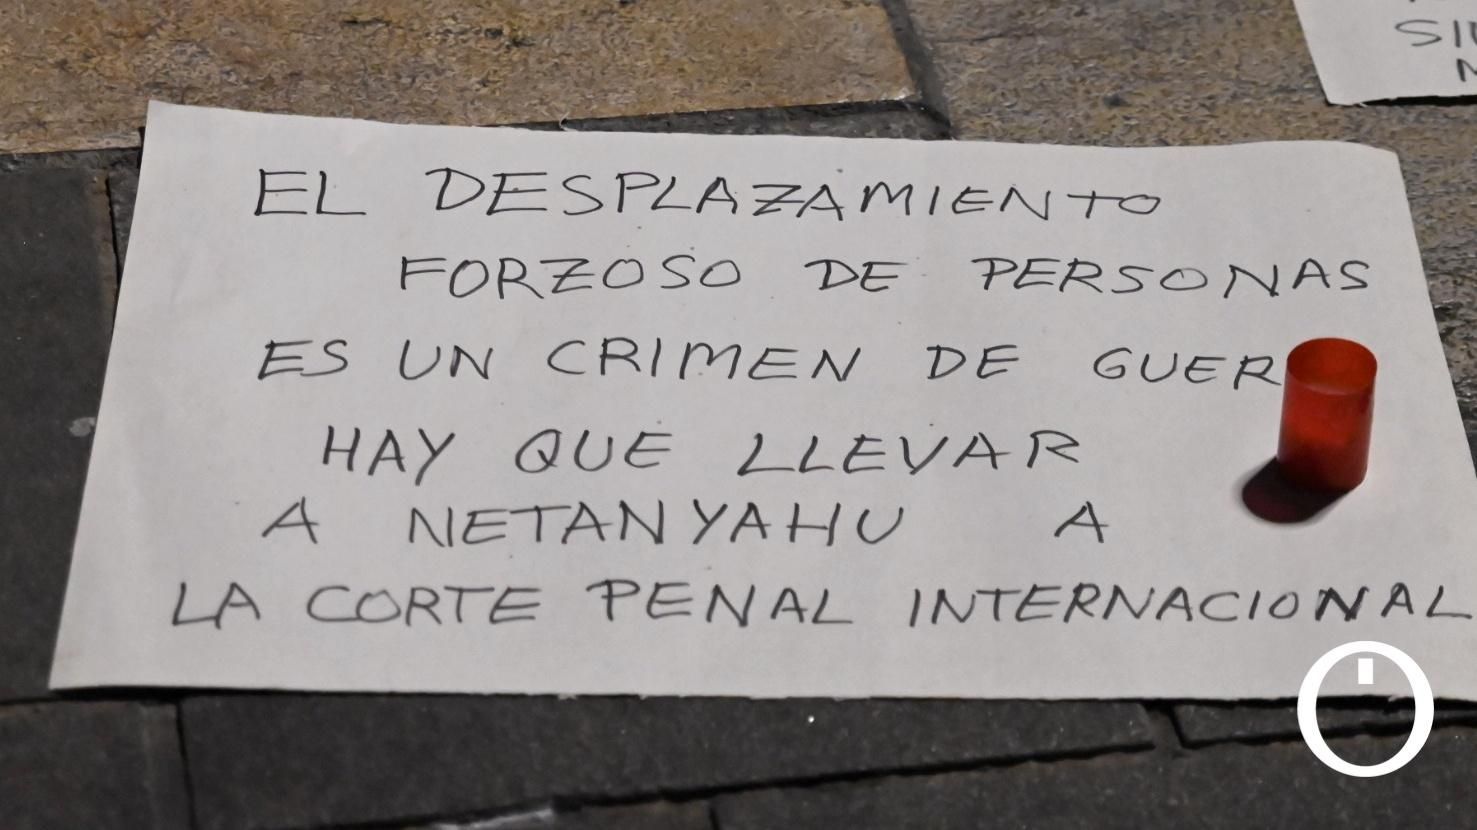 EL DESPLAZAMIENTO
FORZOSO DE PERSONAS
ES UN CRIMEN DE GUER
HAY QUE LLEVAR
A NETANYAHU A
LA CORTE PENAL INTERNACIONAL